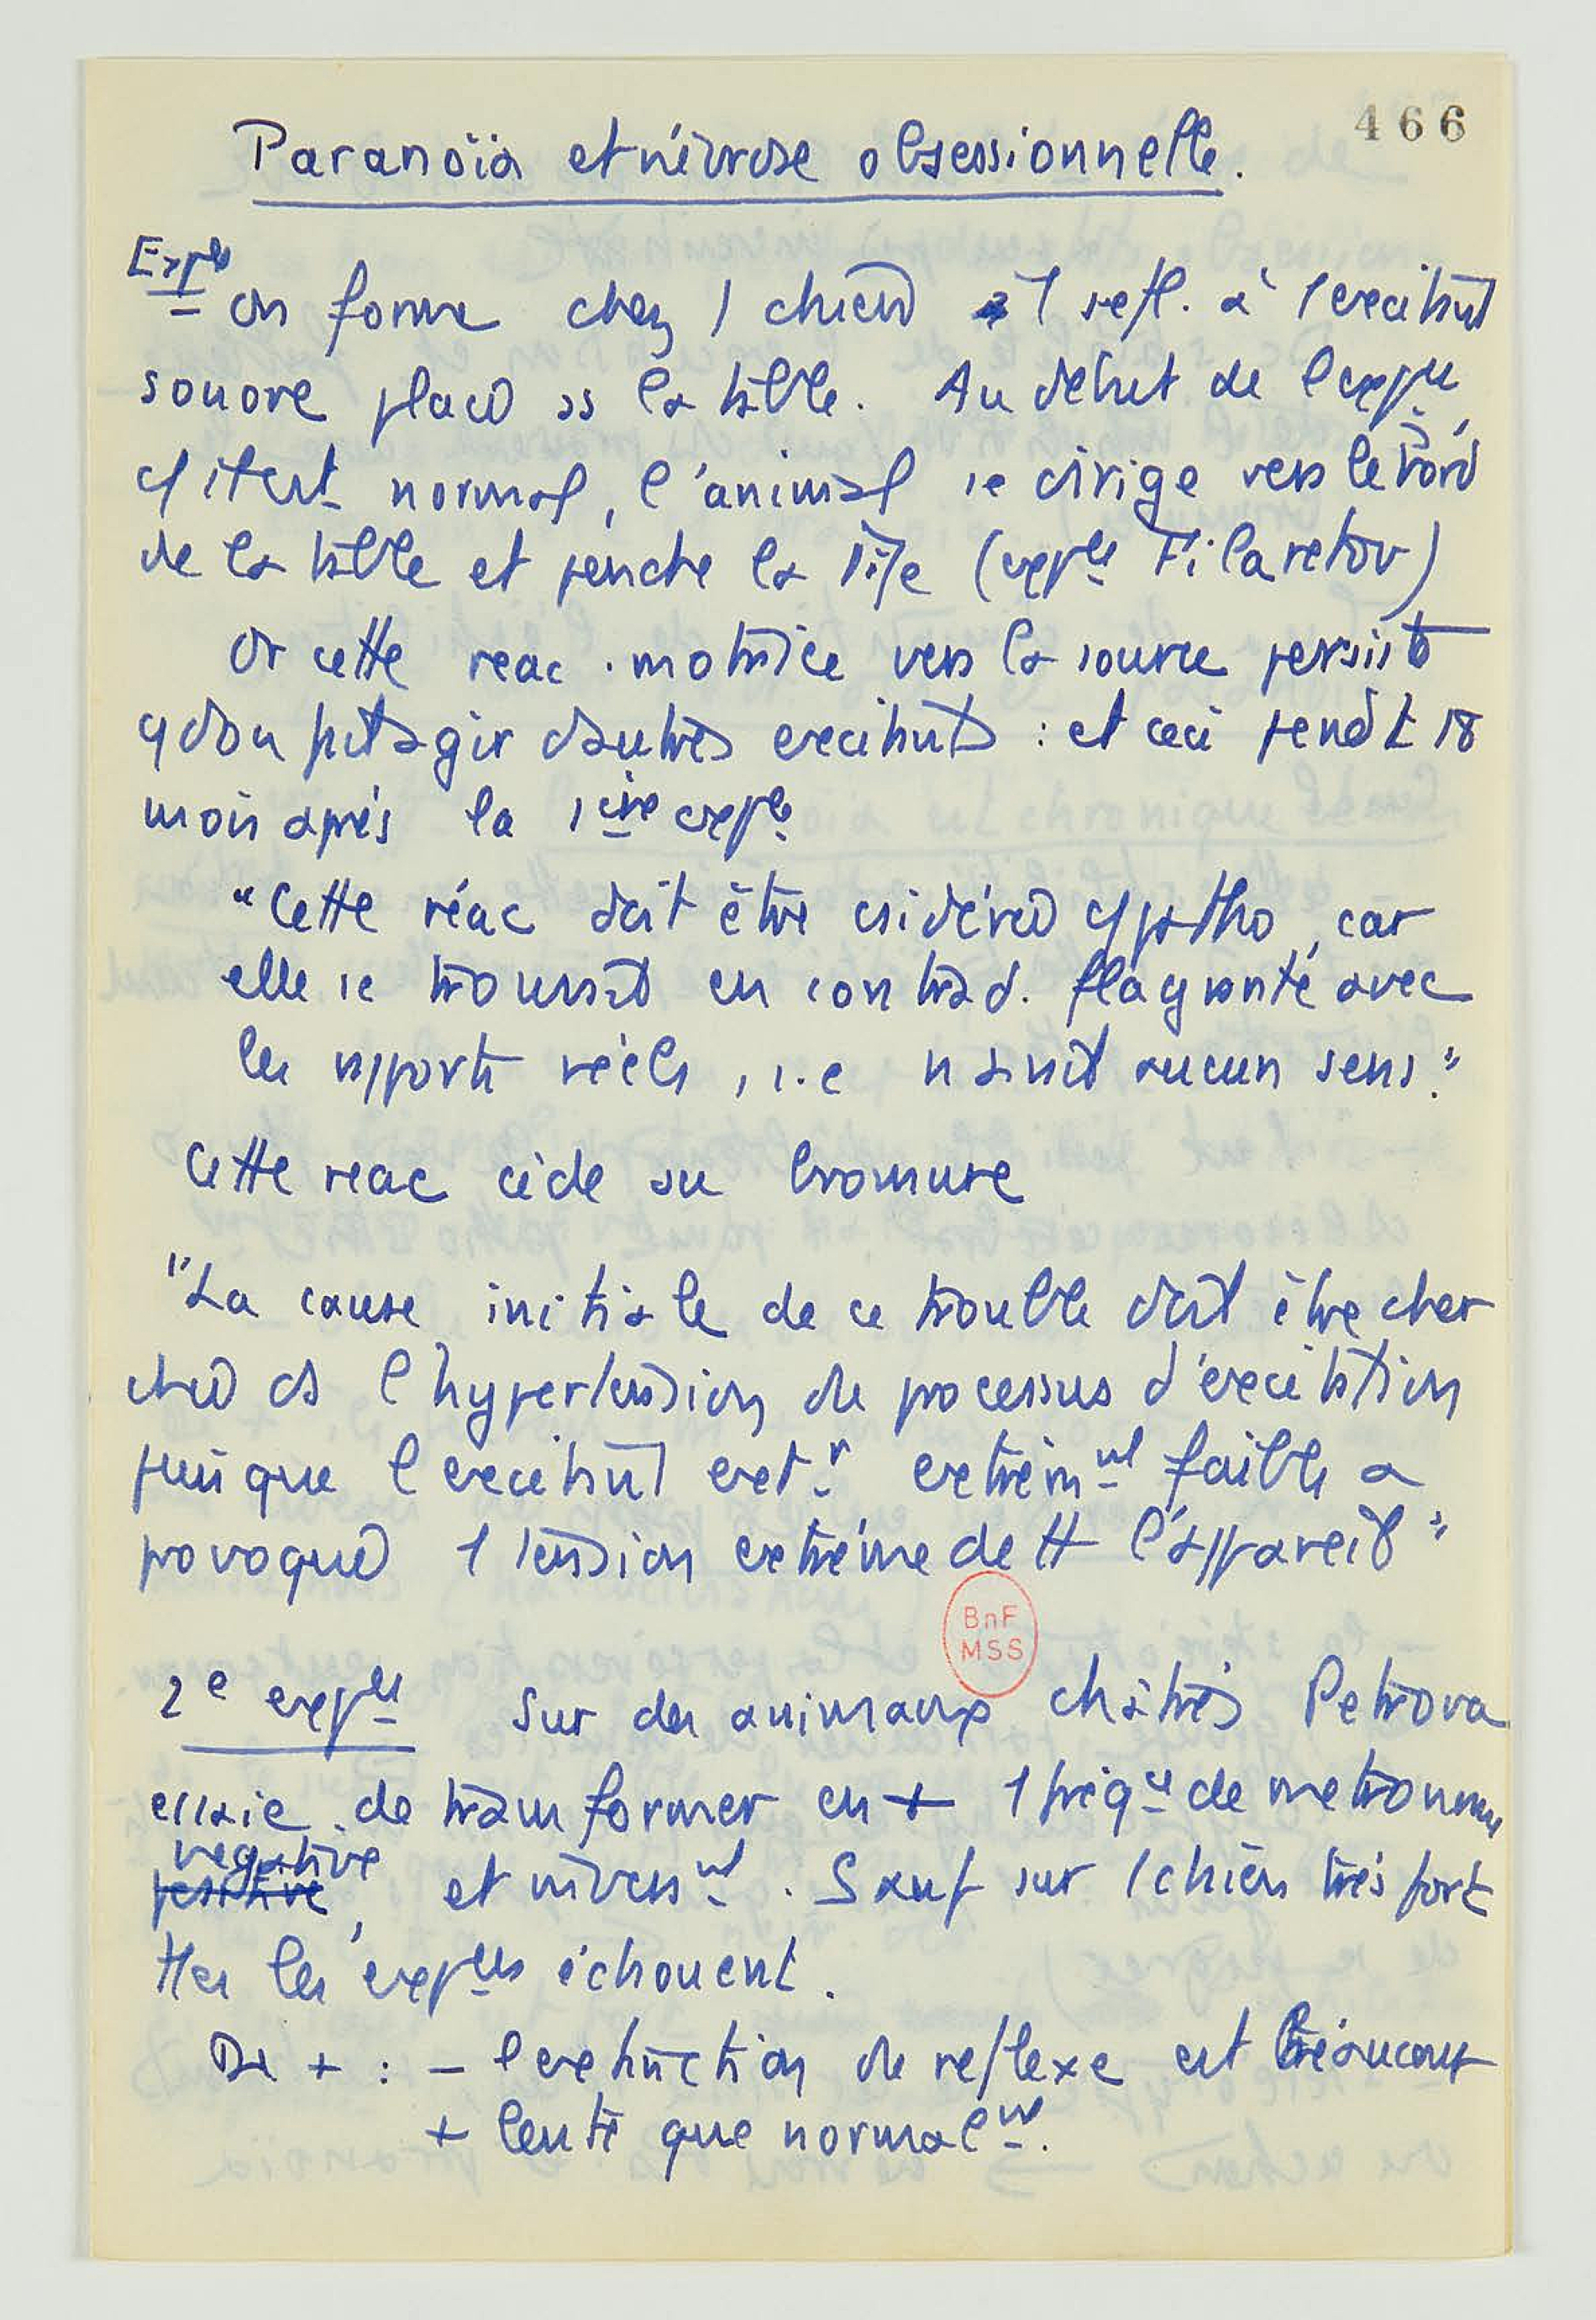 466
Paranoïa et névrose obsessionnelle.
Expce
on forme chez 1 chien 1 refl. à 1 excitant
sonore placé ss la table. Au début de l'expce,
c/ it est normal, l'animal se dirige vers le bord
de la table et penche la tête (expce Filaretov)
Or cette reac. motrice vers la source persiste
qd on fait agir d'autres excitants : et ceci pendt 18
mois après la 1ère expce
"Cette réac doit être csidérée c/ patho, car
elle se trouvait en contrad. flagrante avec
les rapports réels, i.e n'avait aucun sens."
Cette reac cède au bromure
"La cause initiale de ce trouble doit être cher
chée ds l'hypertension du processus d'excitation
puisque l'excitant extr extrêmnt faible a
provoqué 1 tension extrême de tt l'appareil"
BnF
MSS
2e expce Sur des animaux châtrés Petrova
essaie de transformer en + 1 fréqce de metronome
negative
positive, et inversnt. Sauf sur 1 chien très fort
ttes les expces échouent.
De + : – l'extinction du reflexe est beaucoup
+ lente que normalnt.